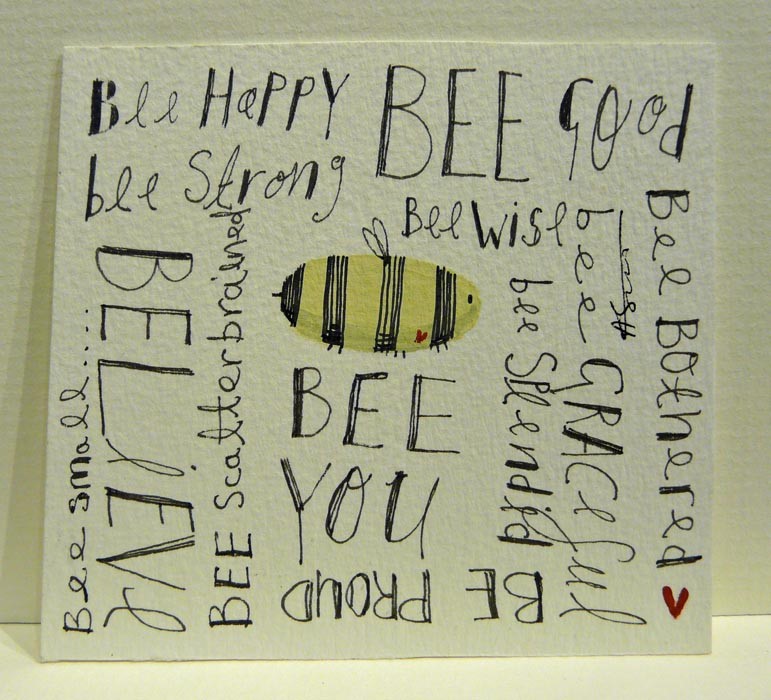 Bee Happy
BEE Good
bee Strong
Bee Wise
Bee Bothered
bee GRACeful
bee Splendid
BELiEVe
BEE Scatterbrained
Bee small.....
BEE
YOU
BE PROUD